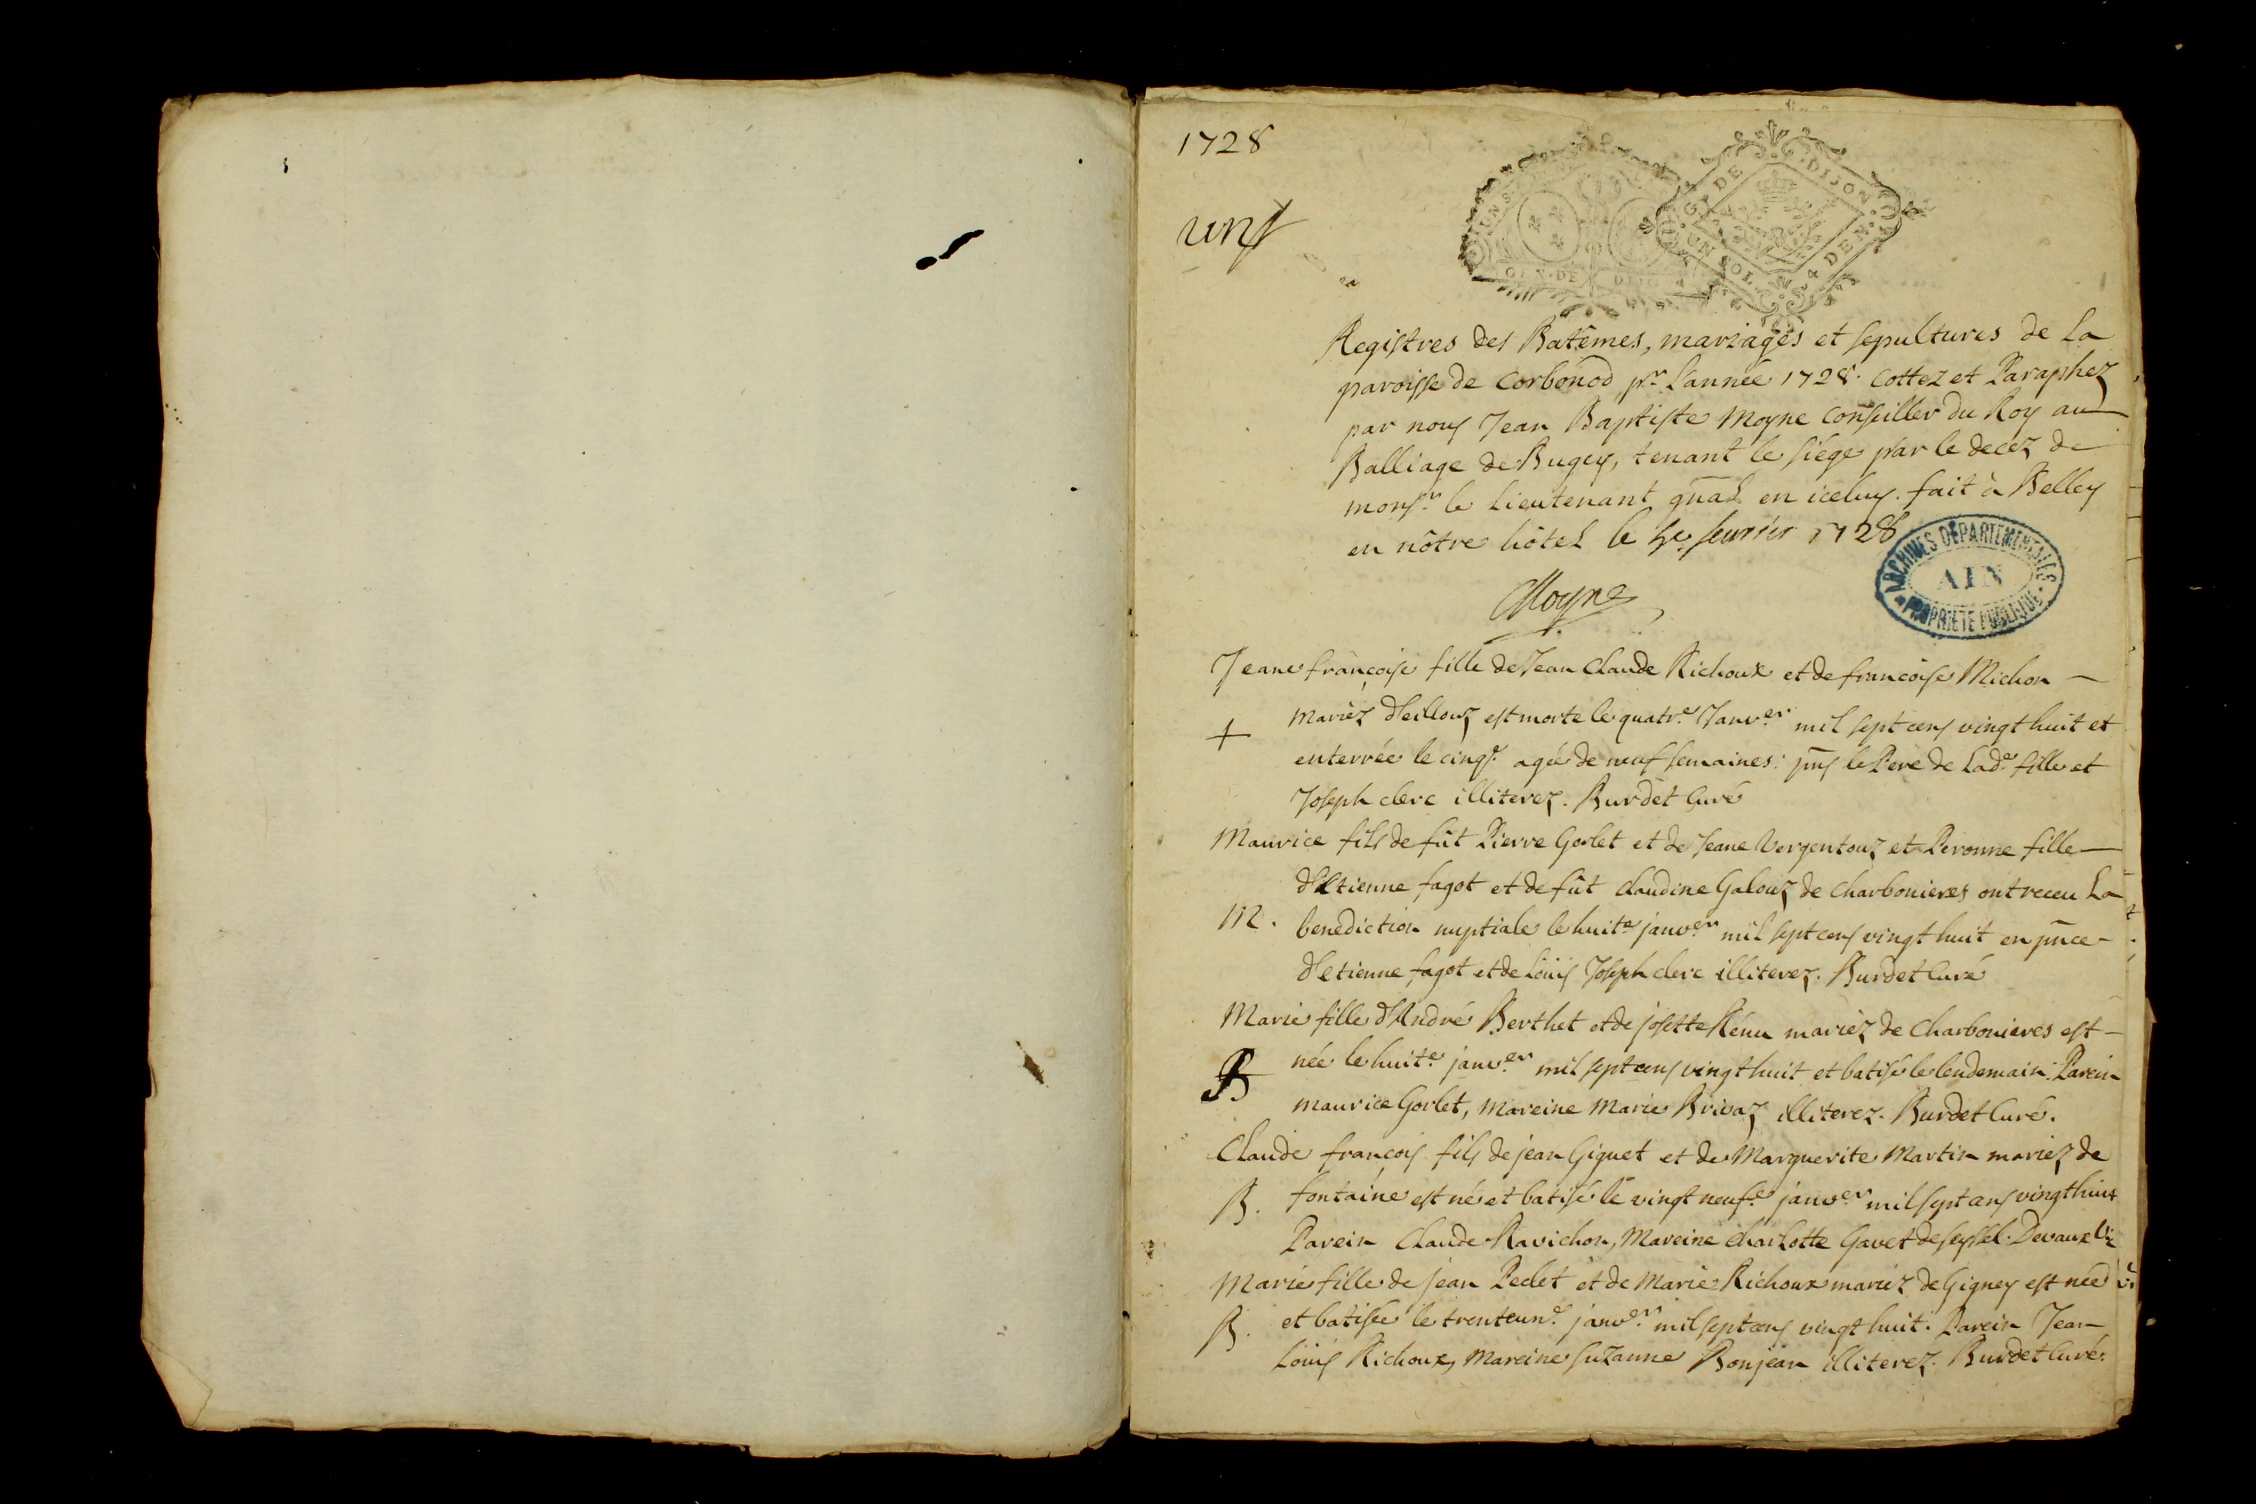 1728
un
GEN. DE DIJON
UN SOL. 4 DEN.
Registres des Batêmes, mariages et sepultures de La
paroisse de Corbonod pr. L'année 1728. Cottez et Paraphez
par nous Jean Baptiste Moyne Conseiller du Roy au
Balliage de Bugey, tenant le siége par le decez de
monsr. le Lieutenant gnal en iceluy. fait à Belley
en nôtre hôtel le 5e feurier 1728
Moyne
ARCHIVES DÉPARTEMENTALES
AIN
PROPRIÉTÉ PUBLIQUE
Jeane françoise fille de Jean Claude Richoux et de francoise Michon
mariéz d'eillouz est morte le quatre. Janver mil sept cens vingt huit et
+
enterrée le cinqe. agée de neuf semaines: pns le Pere de Lade. fille et
Joseph clerc illiterez. Burdet Curé
Maurice fils de fût Pierre Gorlet et de Jeane Vergentouz et Peronne fille
d'Etienne fagot et de fût claudine Galouz de Charbonieres ont receu La
M. benediction nuptiale le huite janver mil sept cens vingt huit en pnce
d'etienne fagot et de Loüis Joseph clerc illiterez. Burdet Curé
Marie fille d'André Berthet et de josette Rénu mariéz de Charbonieres est
B née le huite. janver mil sept cens vingt huit et batisé le lendemain. Parein
maurice Gorlet, Mareine Marie Brivaz illiterez. Burdet Curé.
Claude françois fils de jean Giguet et de Marguerite Martin mariez de
B. fontaine est né et batisé le vingt neufe janver mil sept cens vingt huit
Parein Claude Ravichon, Mareine Charlotte Gavet de seyssel. Devaux Vic
Marie fille de Jean Peclet et de Marie Richoux mariéz de Gigney est née
B. et batisée le trenteune. janver mil sept cens vingt huit. Parein Jean
Loüis Richoux, Mareine Suzanne Bonjean illiterez. Burdet Curé.